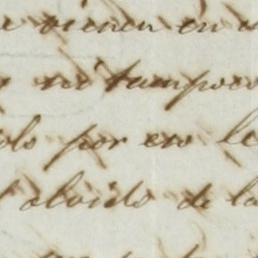 e vienen en
ni tampoco
do por eso le
olvido de la